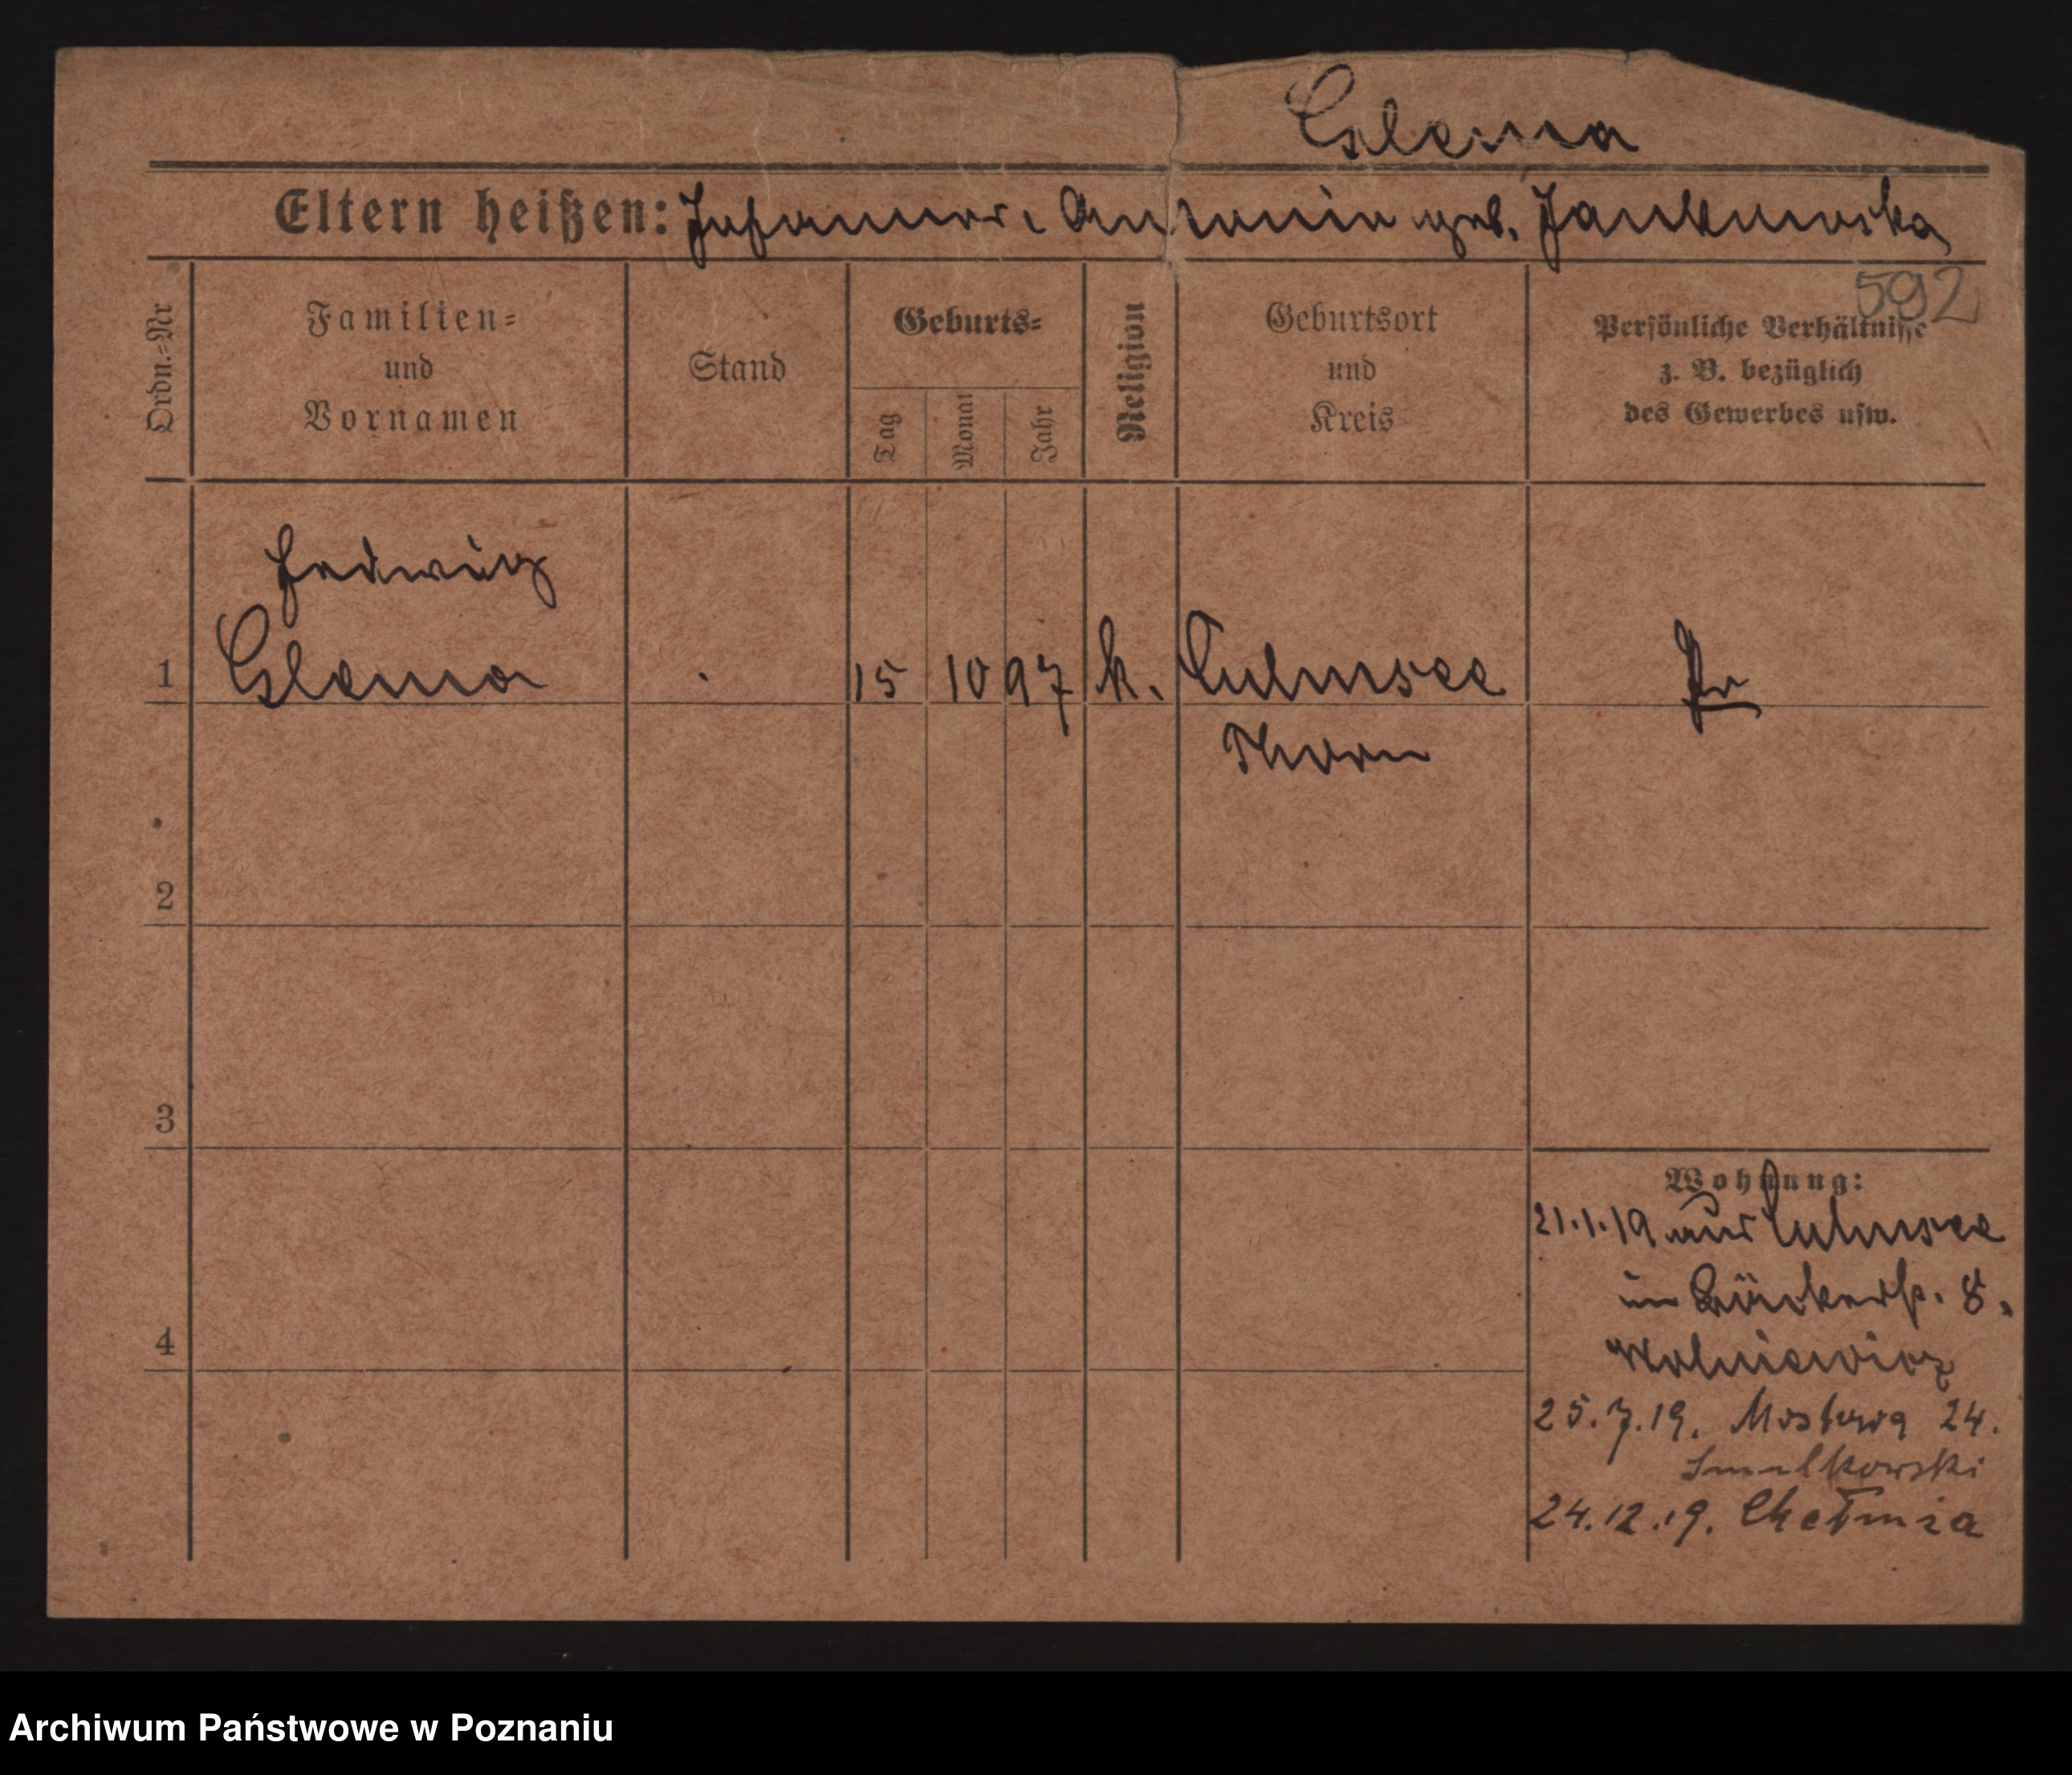 Glema
Eltern heißen: Johannes u. Antonie geb. Jankowska
592
Ordn.-Nr
Familien-
und
Vornamen
Stand
Geburts-
Tag
Monat
Jahr
Religion
Geburtsort
und
Kreis
Persönliche Verhältnisse
z. B. bezüglich
des Gewerbes usw.
Hedwig
1 Glema 15 10 97 k. Culmsee Pr
Thorn
2
3
Wohnung:
21.1.19 aus Culmsee
in Bäckerstr. 8.
4
Wolniewicz
25.7.19. Mostowa 24.
Smulkowski
24.12.19. Chełmża
Archiwum Państwowe w Poznaniu